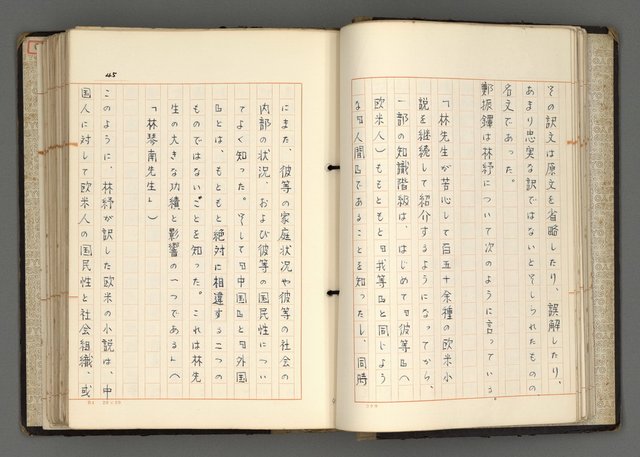 その訳文は原文を省略したり、誤解したり、
あまり忠実な訳ではないとそしられたものの
名文であった。
鄭振鐸は林紓について次のように言っている
「林先生が苦心して百五十余種の欧米小
説を継続して紹介するようになってから、
一部の知識階級は、はじめて『彼等』（
欧米人）ももともと『我等』と同じよう
な『人間』であることを知ったし、同時
45
にまた、彼等の家庭状況や彼等の社会の
内部の状況、および彼等の国民性につい
てよく知った。そして『中国』と『外国
』とは、もともと絶対に相違する二つの
ものではないことを知った。これは林先
生の大きな功績と影響の一つである」（
「林琴南先生」）
このように、林紓が訳した欧米の小説は、中
国人に対して欧米人の国民性と社会組織、或